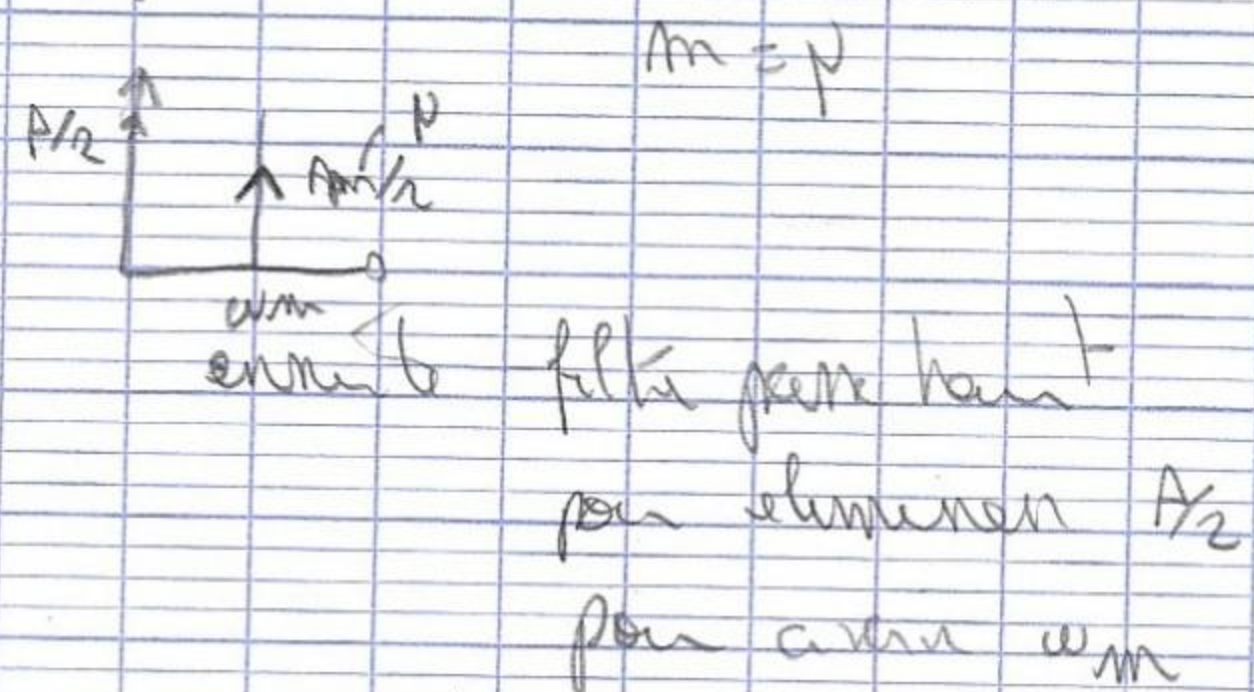 m = µ
A/2
µ
Am/2
ωm
ensuite filtre passe haut
pour eliminer A/2
pour avoir ωm